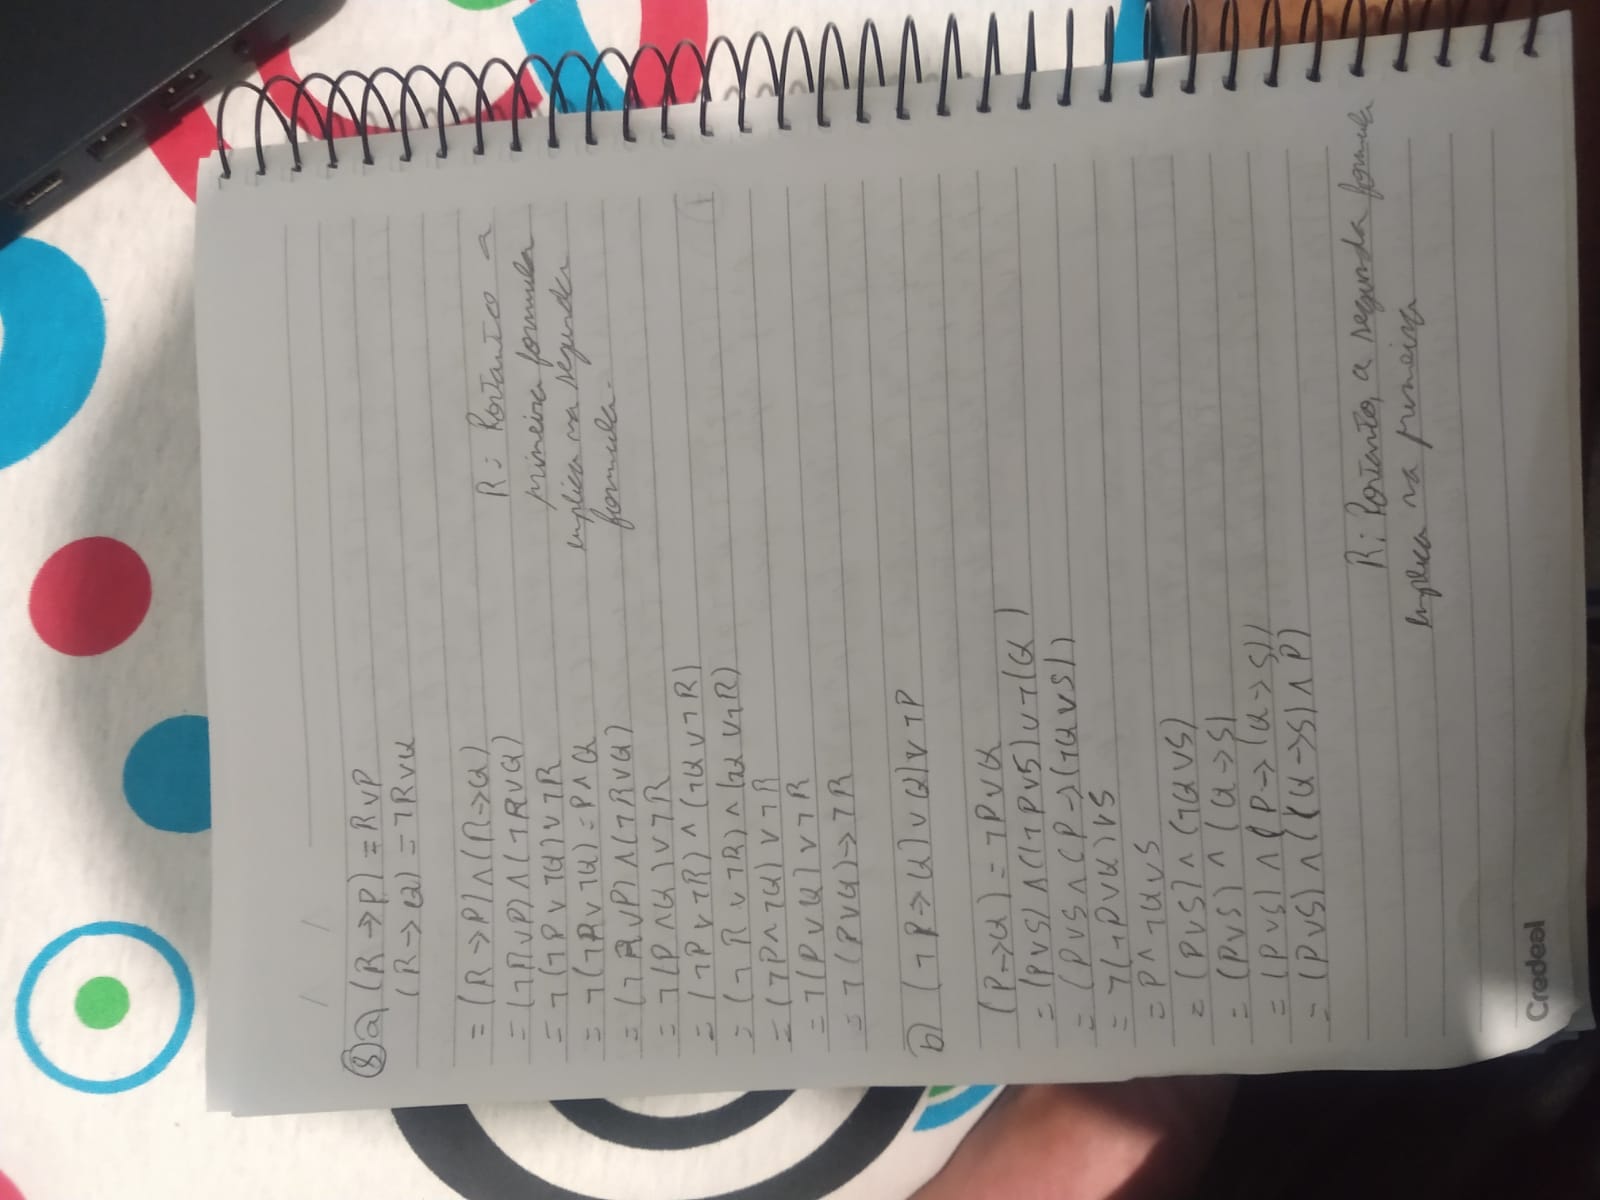 8) a) (R→P) = R∨P
(R→Q) = ¬R∨Q
= (R→P)∧(R→Q)
= (¬R∨P)∧(¬R∨Q)
= ¬(¬P∨¬Q)∨¬R
= ¬(¬R∨¬Q) = P∧Q
= (¬R∨P)∧(¬R∨Q)
= ¬(P∧Q)∨¬R
= (¬P∨¬R)∧(¬Q∨¬R)
= (¬R∨¬R)∧(Q∨¬R)
= (¬P∧¬Q)∨¬R
= ¬(P∨Q)∨¬R
= ¬(P∨Q)→¬R
R: Portanto a
primeira formula
implica na segunda
formula.
b) (¬P→Q)∨Q)∨¬P
(P→Q) = ¬P∨Q
= (P∨S)∧(¬P∨S)∨¬(Q)
= (P∨S∧(P→(¬Q∨S))
= ¬(¬P∨Q)∨S
= P∧¬Q∨S
= (P∨S)∧(¬Q∨S)
= (P∨S)∧(Q→S)
= (P∨S)∧(P→(Q→S))
= (P∨S)∧((Q→S)∧P)
R: Portanto, a segunda formula
implica na primeira
Credeal